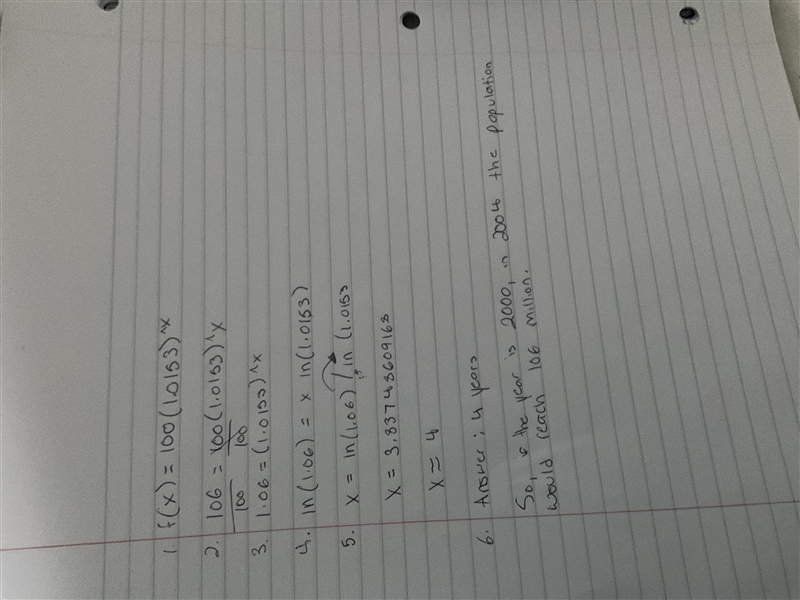 1. f(x) = 100(1.0153)^x
2. 106 = 100(1.0153)^x
100 100
3. 1.06 = (1.0153)^x
4. ln(1.06) = x ln(1.0153)
5. x = ln(1.06) / ln (1.0153
x = 3.83743609168
x ≈ 4
6. Answer: 4 years
So, the year is 2000, in 2004 the population
would reach 106 million.